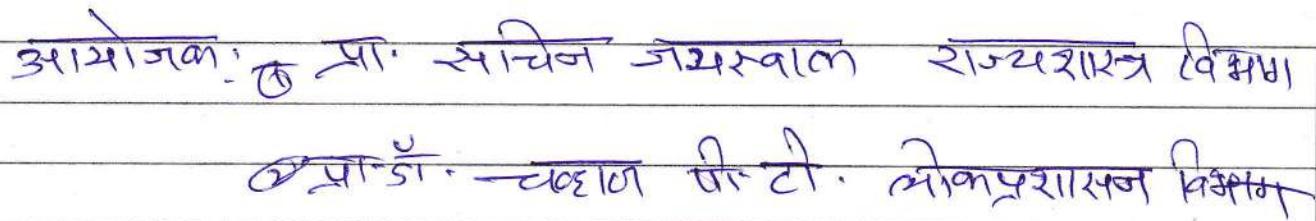 आयोजक: ① प्रा. सचिन जयस्वाल राज्यशास्त्र विभाग
② प्रा. डॉ. चव्हाण पी. टी. लोकप्रशासन विभाग